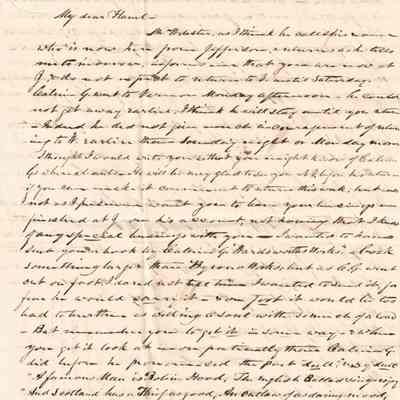 My dear Hamt -
Mr Webster, as I think he called his name
who is now here from Jefferson, returns & he tells
me to-morrow, informs me that you are now at
J. & do not expect to return to F. until Saturday.
G went to Vernon Monday afternoon - he could
not get away earlier. I think he will stay until you return
- Indeed he did not give much encouragement of return
ing to F. earlier than Sunday night or Monday morn
I thought I would write you so that you might know of
G's whereabouts - He will be very glad to see you at
if you can make it convenient to return this week, but
not as I presume want you to leave your business un
finished at J on his account, not knowing that I know
of any special business with you - I wanted to have
sent you a book by G "Wordsworth's Works" - Book
something larger than Byron's Works, but as G. went
out on foot I dared not I wanted to send it for
fear he would carry it - & on foot it would be too
had to burthen as willing a soul with so much of a load
- But remember you to get it in some way - & when
you get it look at - on poetically than G
did before he pronounced the Poet dull! very dull
"A famous Man is Robin Hood, The English Ballad-singer's joy
And Scotland has a Thief as good, An outlaw of as daring mood,